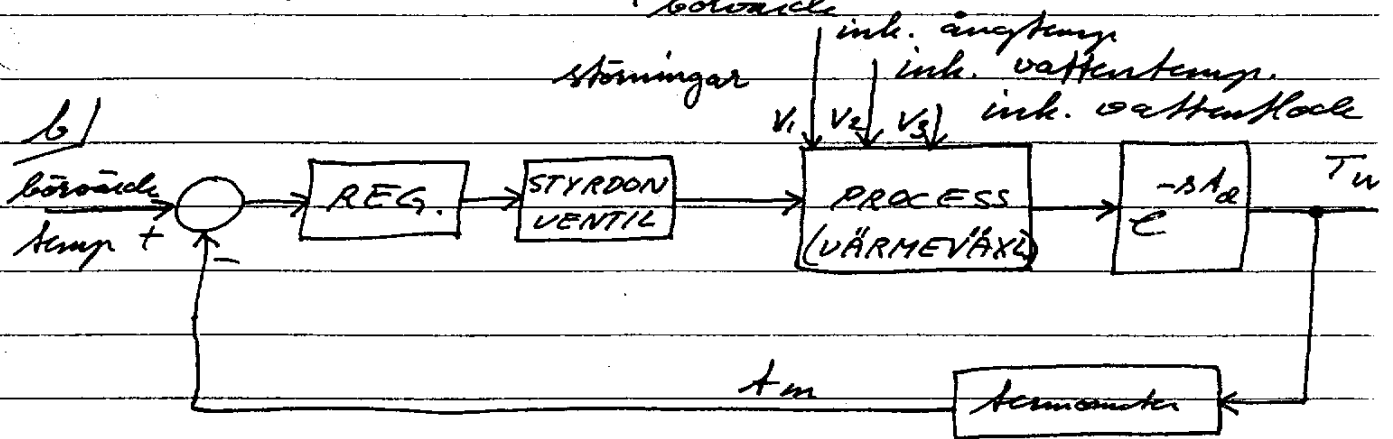 börvärde
ink. ångtemp
störningar
ink. vattentemp.
ink. vattenflöde
b/
V₁ V₂ V₃
börvärde
temp + -
REG.
STYRDON
VENTIL
PROCESS
(VÄRMEVÄXL)
e^-std
Tw
tm
termometer